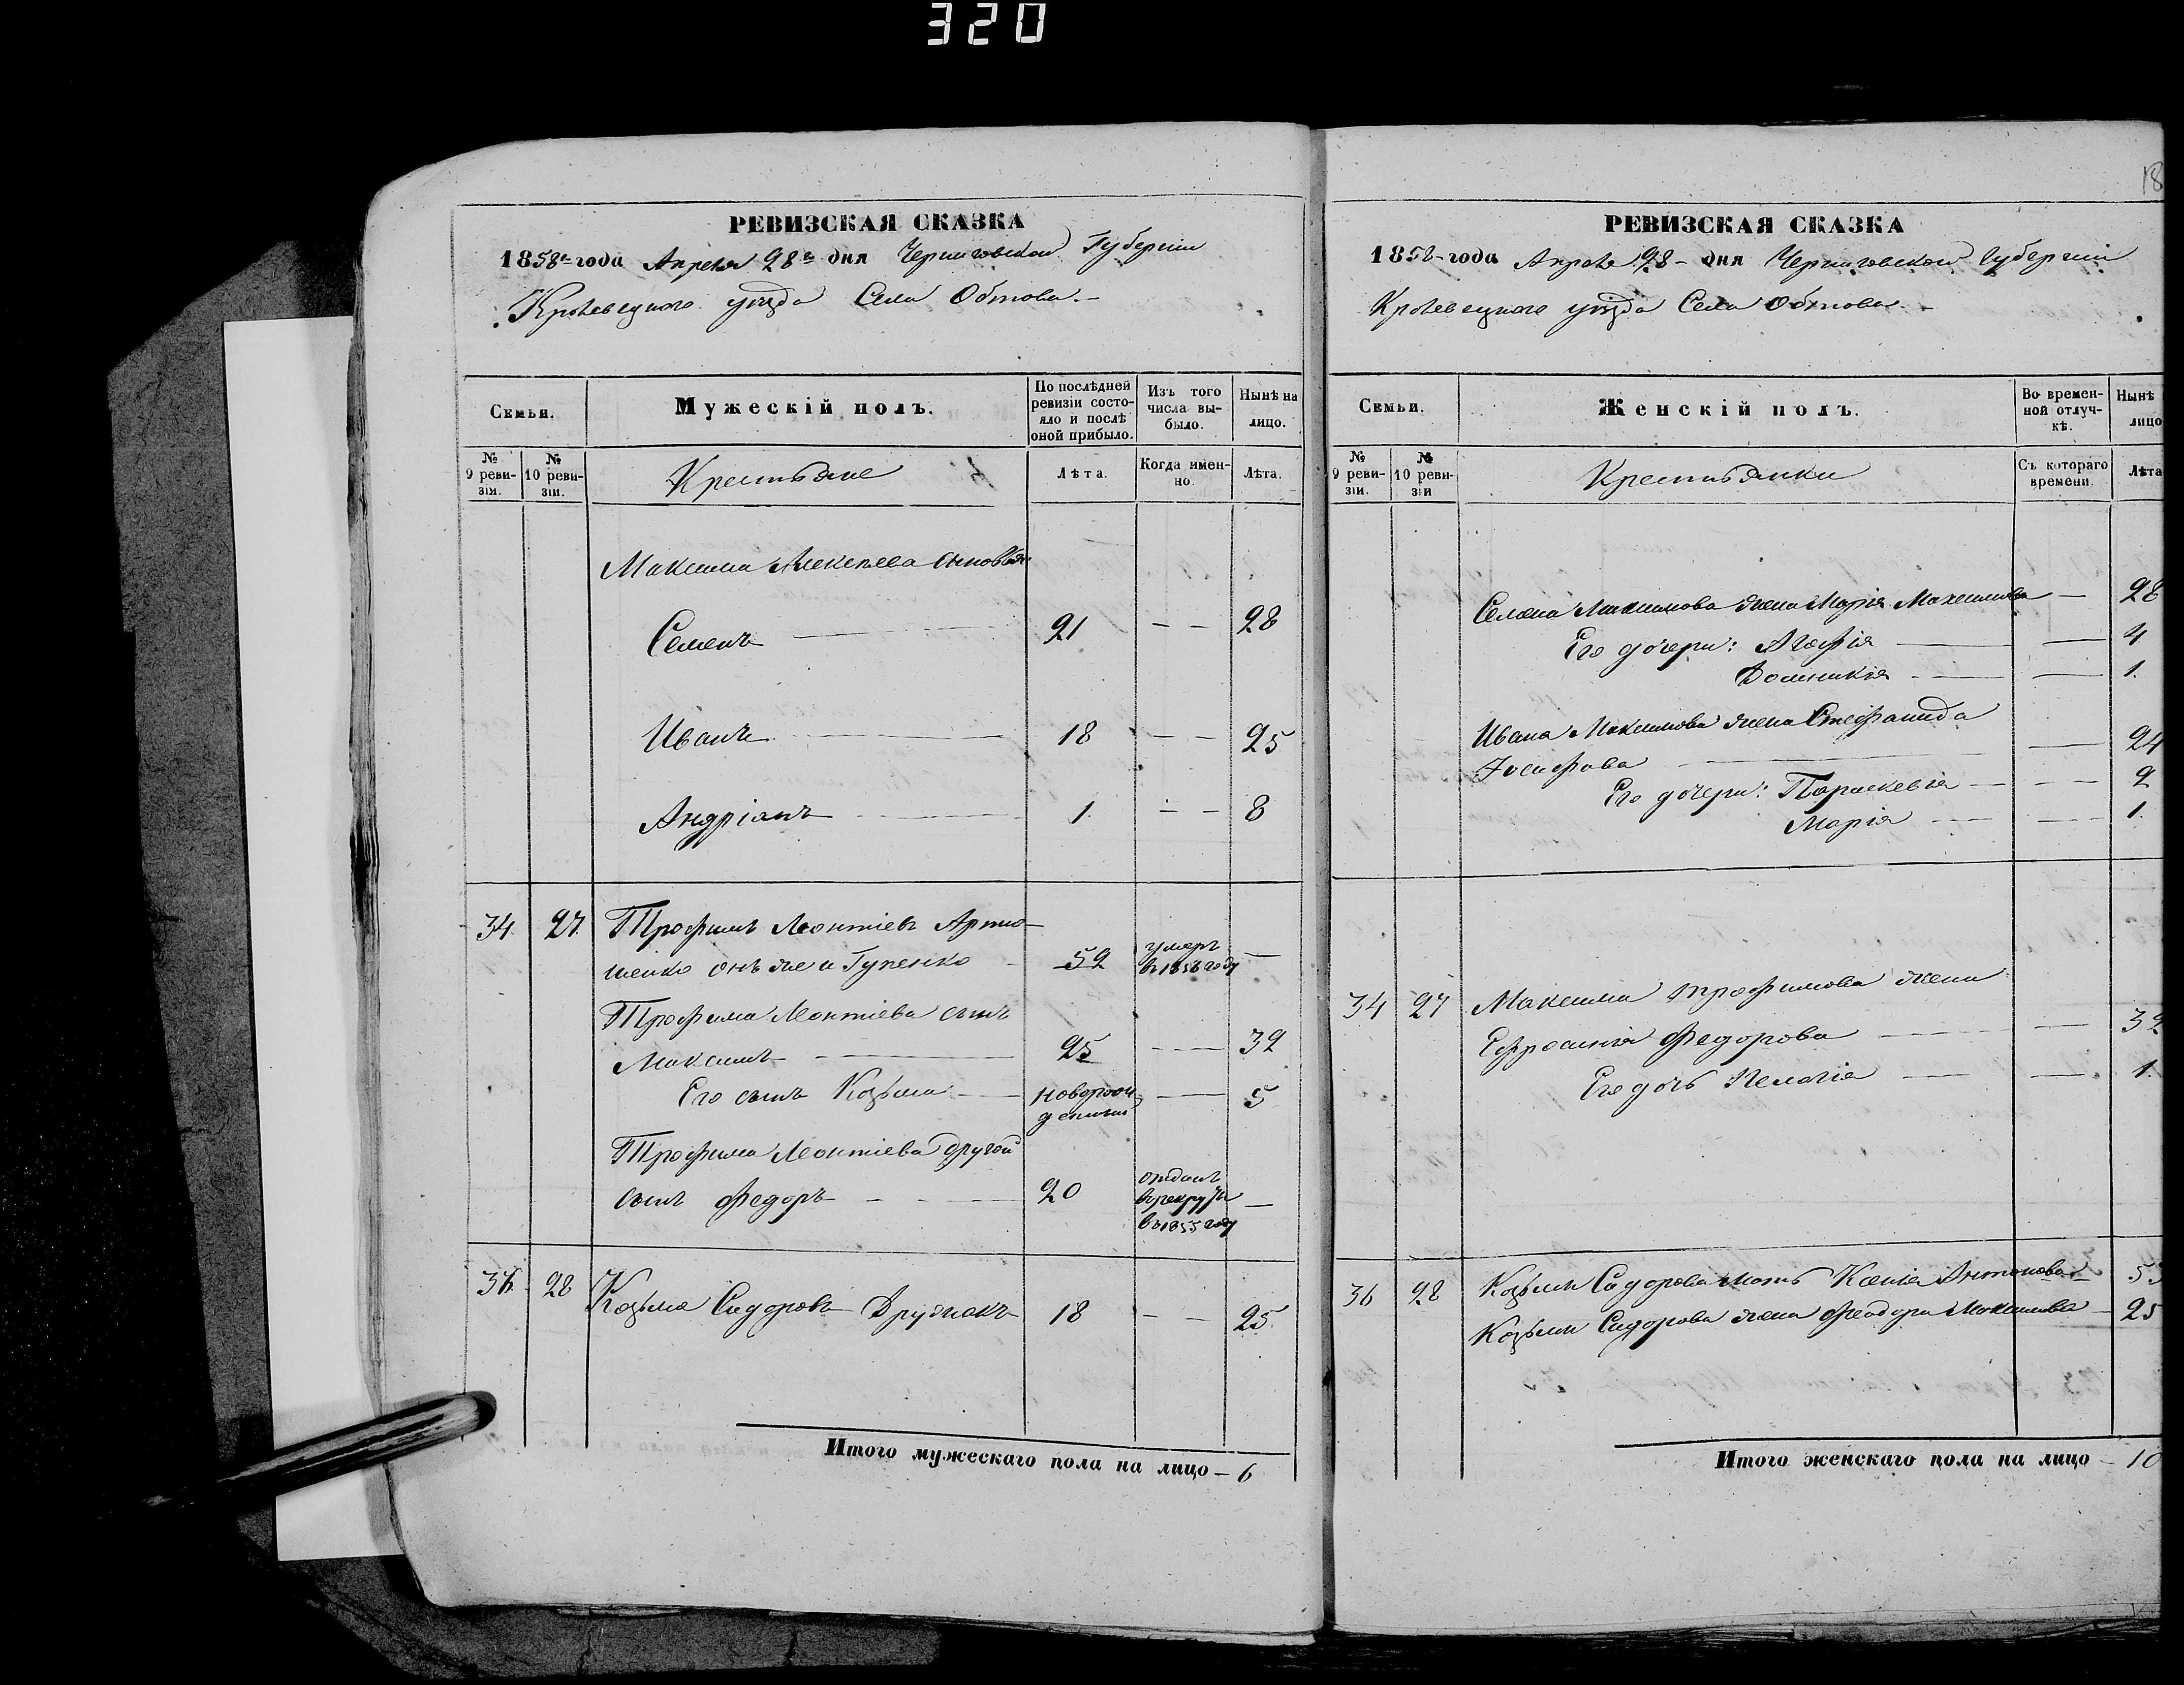 320
18
РЕВИЗСКАЯ СКАЗКА
1858го года Апреля 28го дня Черниговской Губерніи
Кролевецкого уѣзда Села Обтова.
Семьи.
Мужескій полъ.
По послѣдней ревизіи состояло и послѣ оной прибыло.
Изъ того числа выбыло.
Нынѣ на лицо.
№ 9 ревизіи.
№ 10 ревизіи.
Крестьяне
Лѣта.
Когда именно.
Лѣта.
Максима Алексѣева сыновья
Семенъ — 21 — — 28
Иванъ — 18 — — 25
Андріанъ — 1. — — 8
34 27 Трофимъ Леонтіевъ Артю-
шенко онъ же и Гупенко — 52 умеръ въ 1856 году —
Трофима Леонтіева сынъ
Максимъ — 25 — — 32
Его сынъ Козьма — новорожденный — — 5
Трофима Леонтіева другой
сынъ Федоръ — 20 отданъ въ рекруты въ 1855 году —
36 28 Козьма Сидоровъ Дружнакъ 18 — — 25.
Итого мужескаго пола на лицо — 6
РЕВИЗСКАЯ СКАЗКА
1858 года Апреля 28 дня Черниговской Губерніи
Кролевецкого уѣзда Села Обтова
Семьи.
Женскій полъ.
Во временной отлучкѣ.
Нынѣ
лицо
№ 9 ревизіи.
№ 10 ревизіи
Крестьянки
Съ котораго времени.
Лѣта
Семена Максимова жена Марія Максимова — 28
Его дочери: Агафія — — 4
Домникія — — 1.
Ивана Максимова жена Стефанида
Іосифова — — 24
Его дочери: Параскевія — — 2
Марія — — 1.
34 27 Максима Трофимова жена
Ефросинія Федорова — — 32
Его дочь Пелагія — — 1.
36 28 Козьмы Сидорова мать Ксенія Антонова 53
Козьмы Сидорова жена Феодора Максимова — 25
Итого женскаго пола на лицо — 10